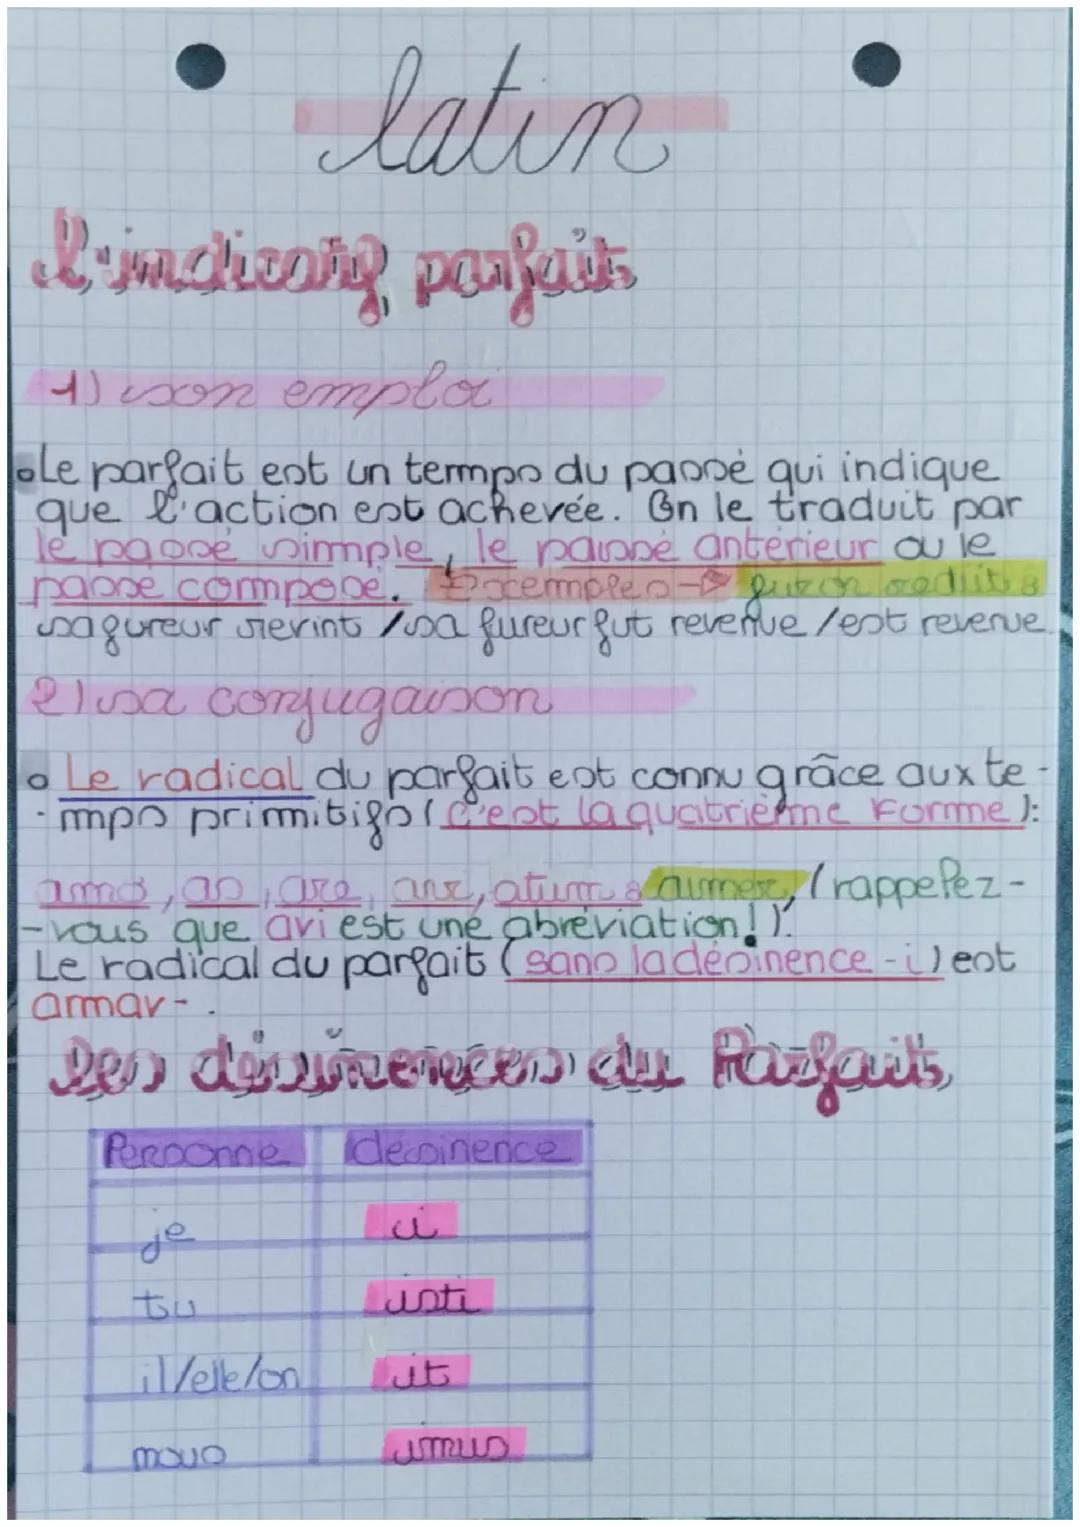 latin
l'indicatif parfait
1) son emploi
Le parfait est un temps du passé qui indique
que l'action est achevée. On le traduit par
le passé simple, le passé antérieur ou le
passé composé. Exemples → furor rediit :
sa fureur revint / sa fureur fut revenue / est revenue.
2) sa conjugaison
Le radical du parfait est connu grâce aux te-
-mps primitifs (c'est la quatrième forme):
amo, as, are, avi, atum : aimer, (rappelez-
-vous que avi est une abréviation!).
Le radical du parfait (sans la désinence -i) est
amav-.
Les désinences du Parfait
Personne desinence
je i
tu isti
il/elle/on it
nous imus